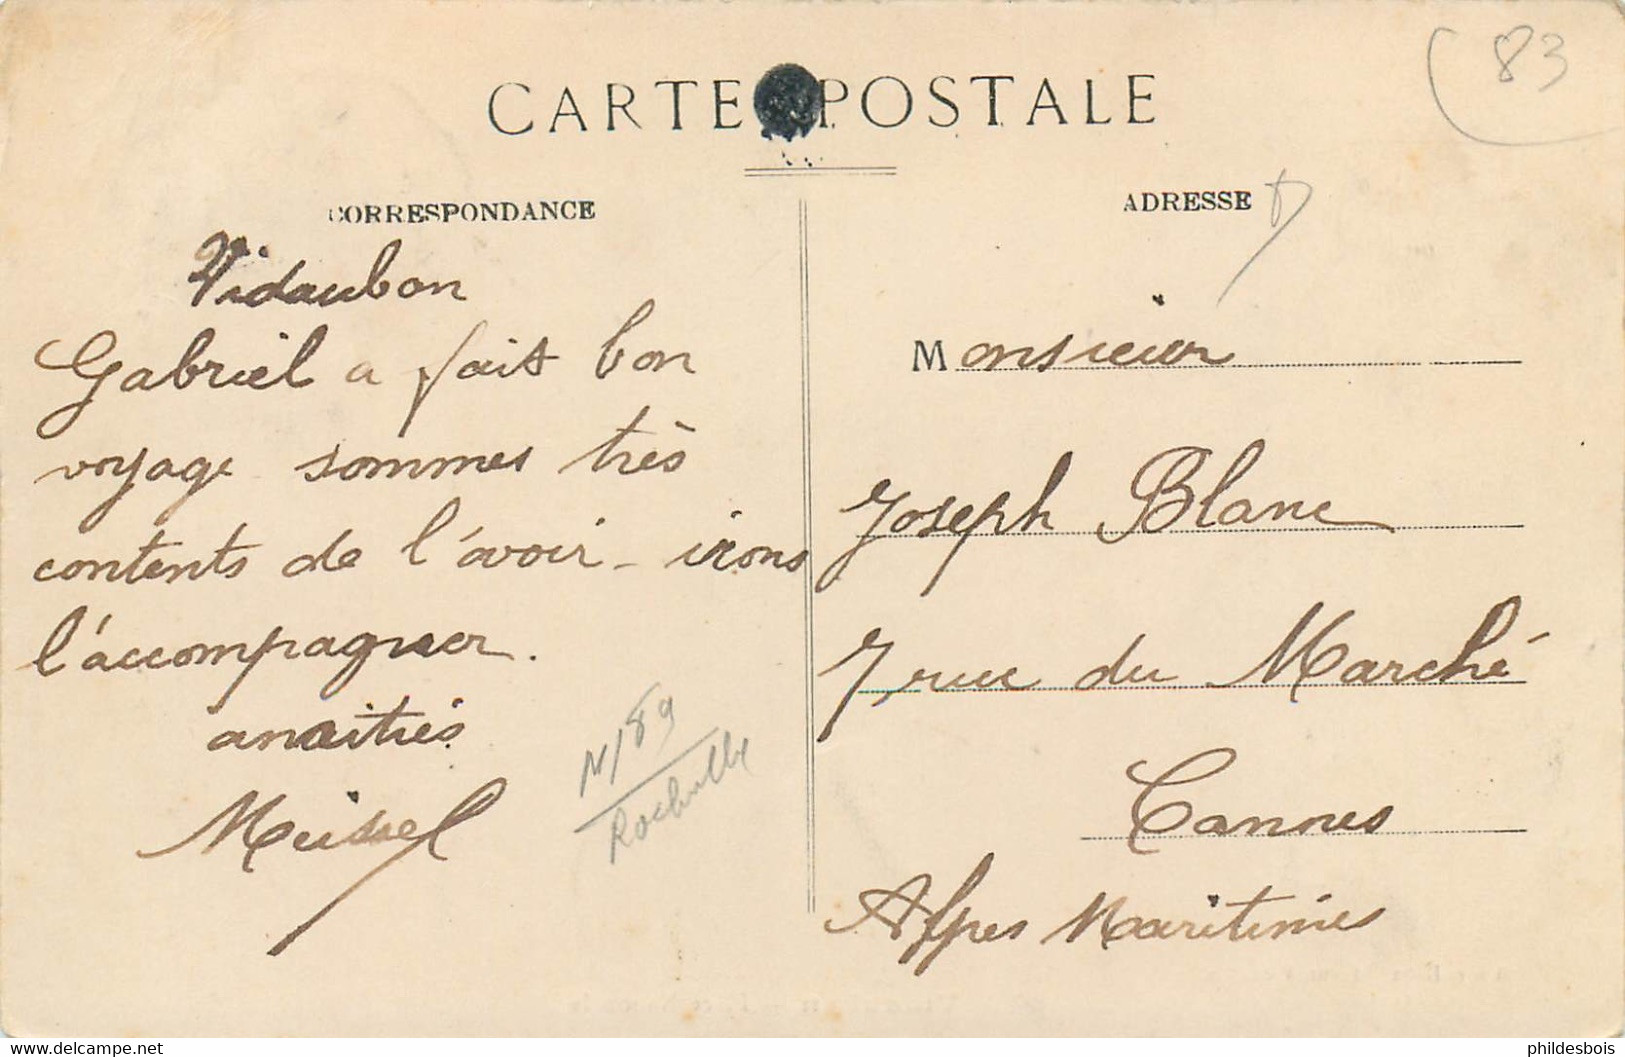 83
CARTE POSTALE
CORRESPONDANCE
Vidauban
Gabriel a fait bon
voyage sommes très
contents de l'avoir - irons
l'accompagner.
amitiés
N/89
ADRESSE
Monsieur
Joseph Blanc
7, rue du Marché
Cannes
Alpes Maritimes
delcampe.net
phildesbois